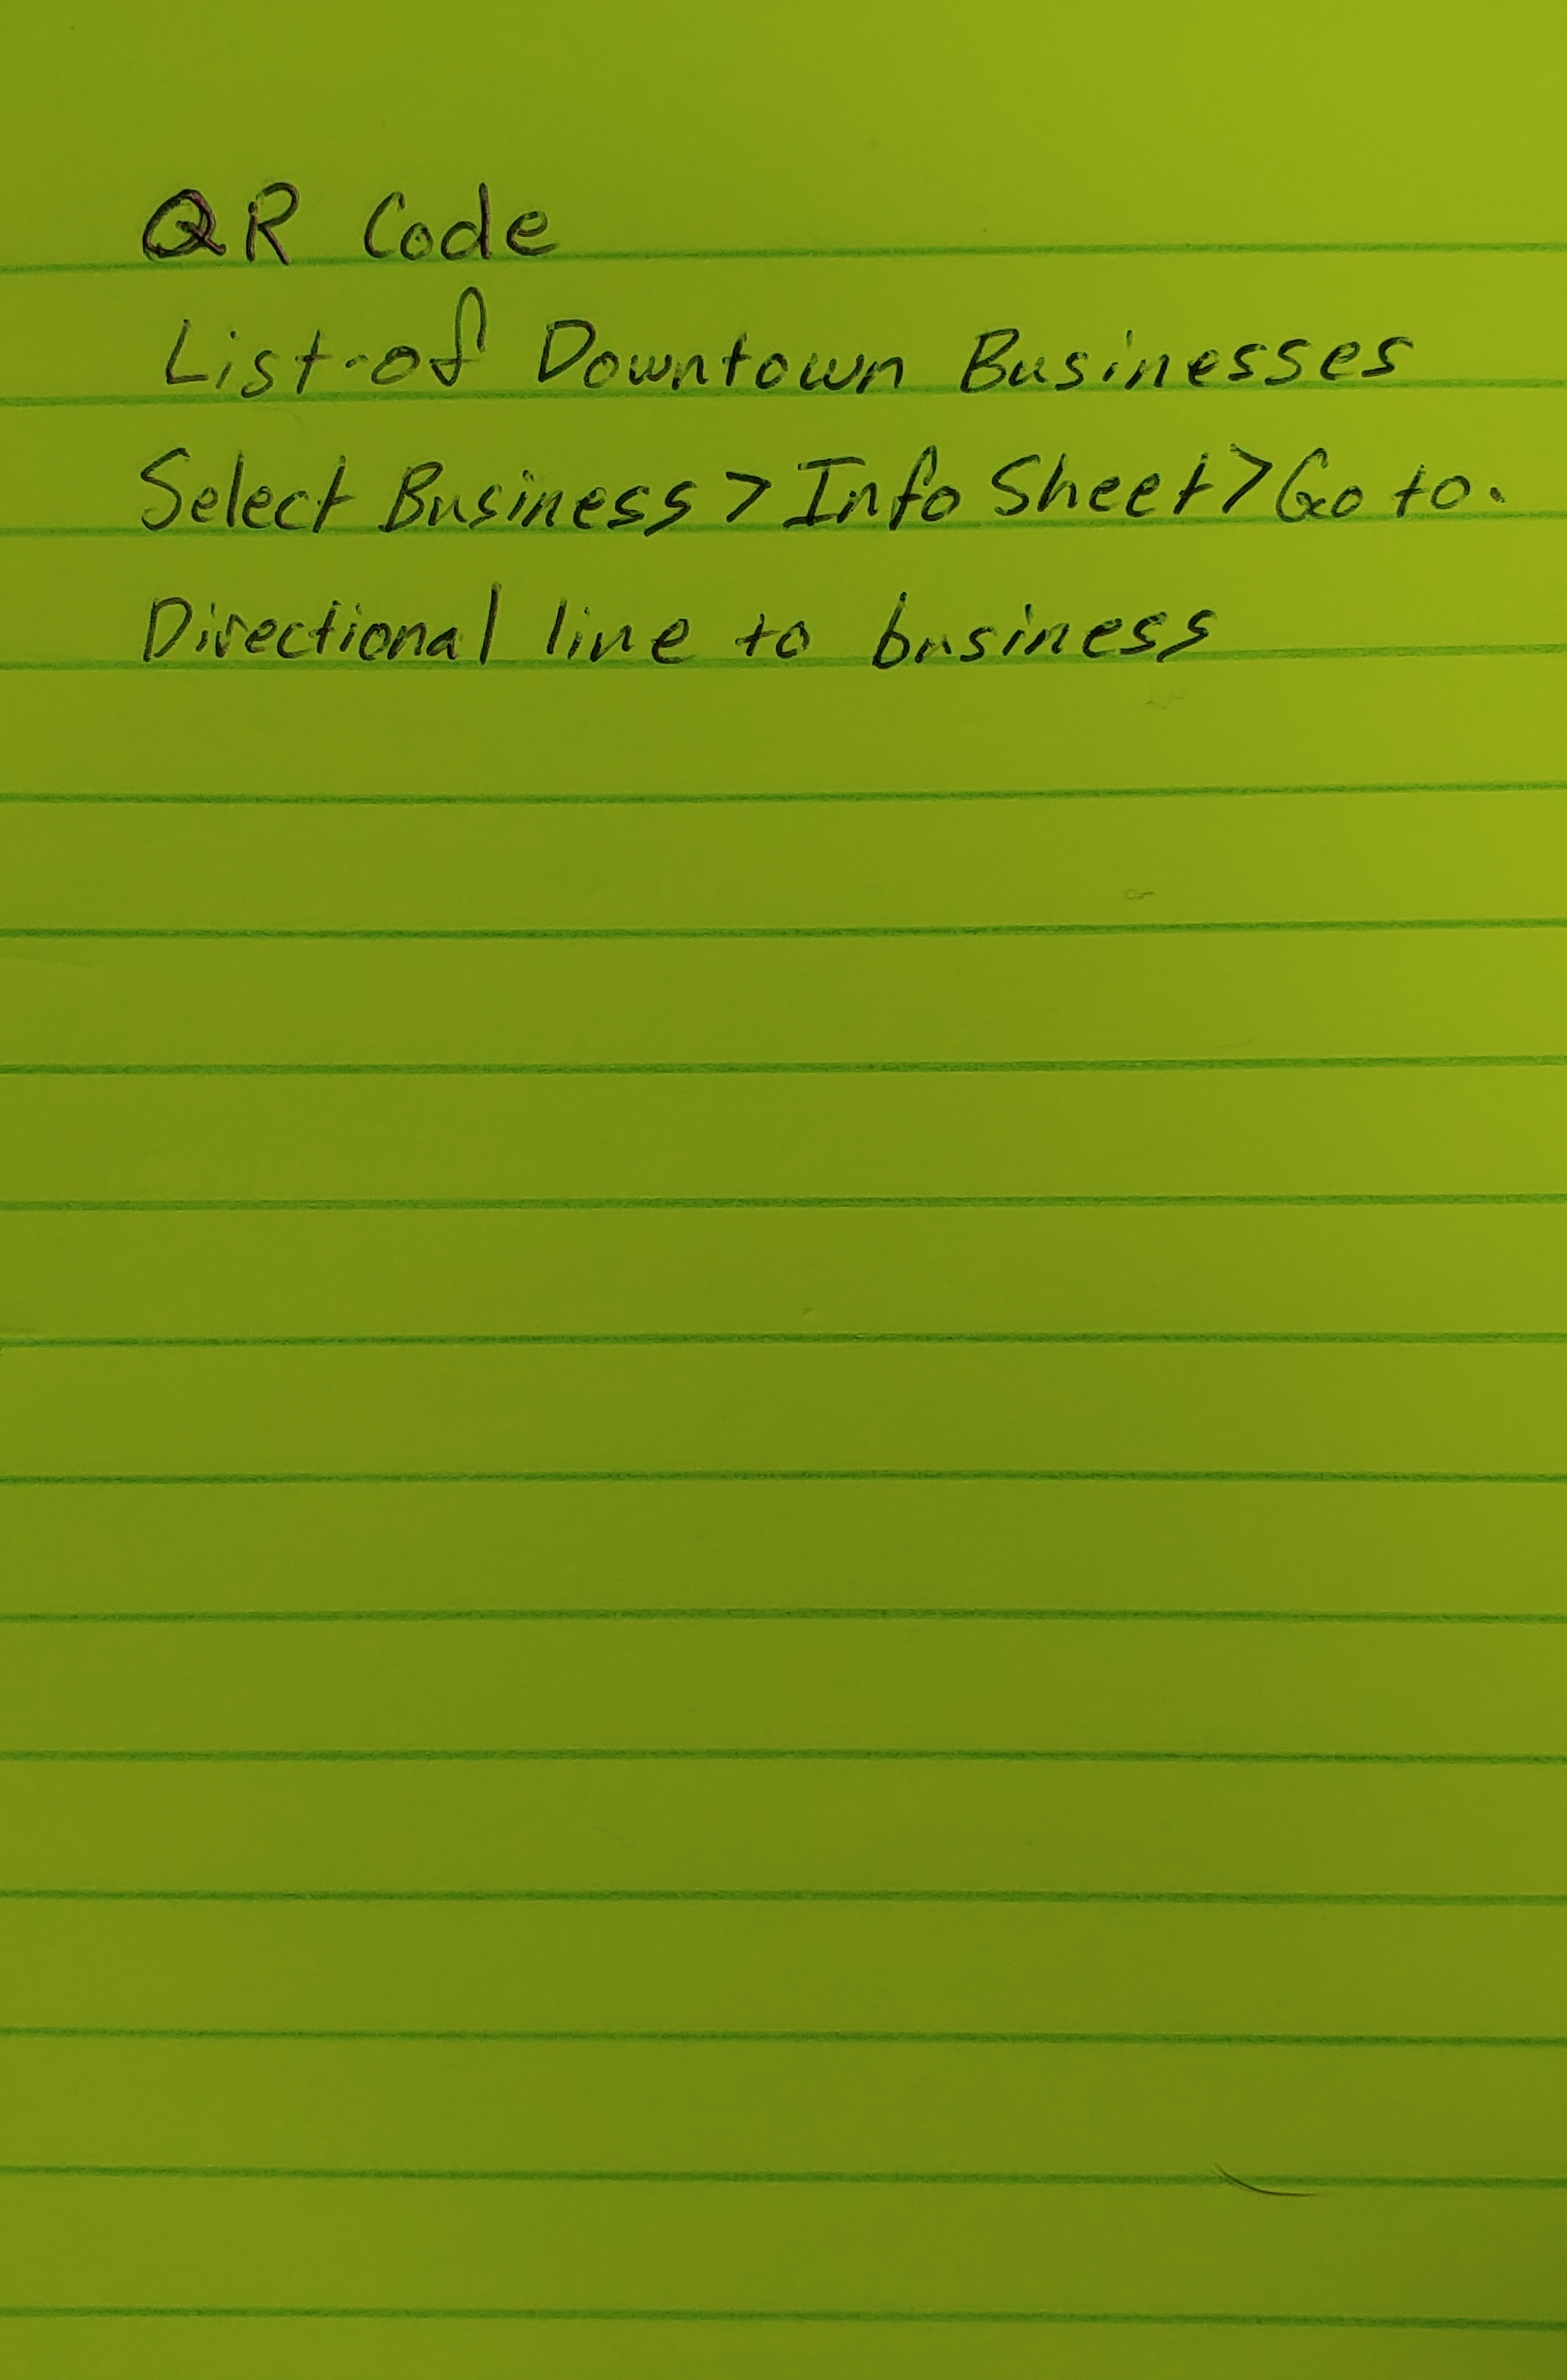 QR Code
List of Downtown Businesses
Select Business > Info Sheet > Go to.
Directional line to business